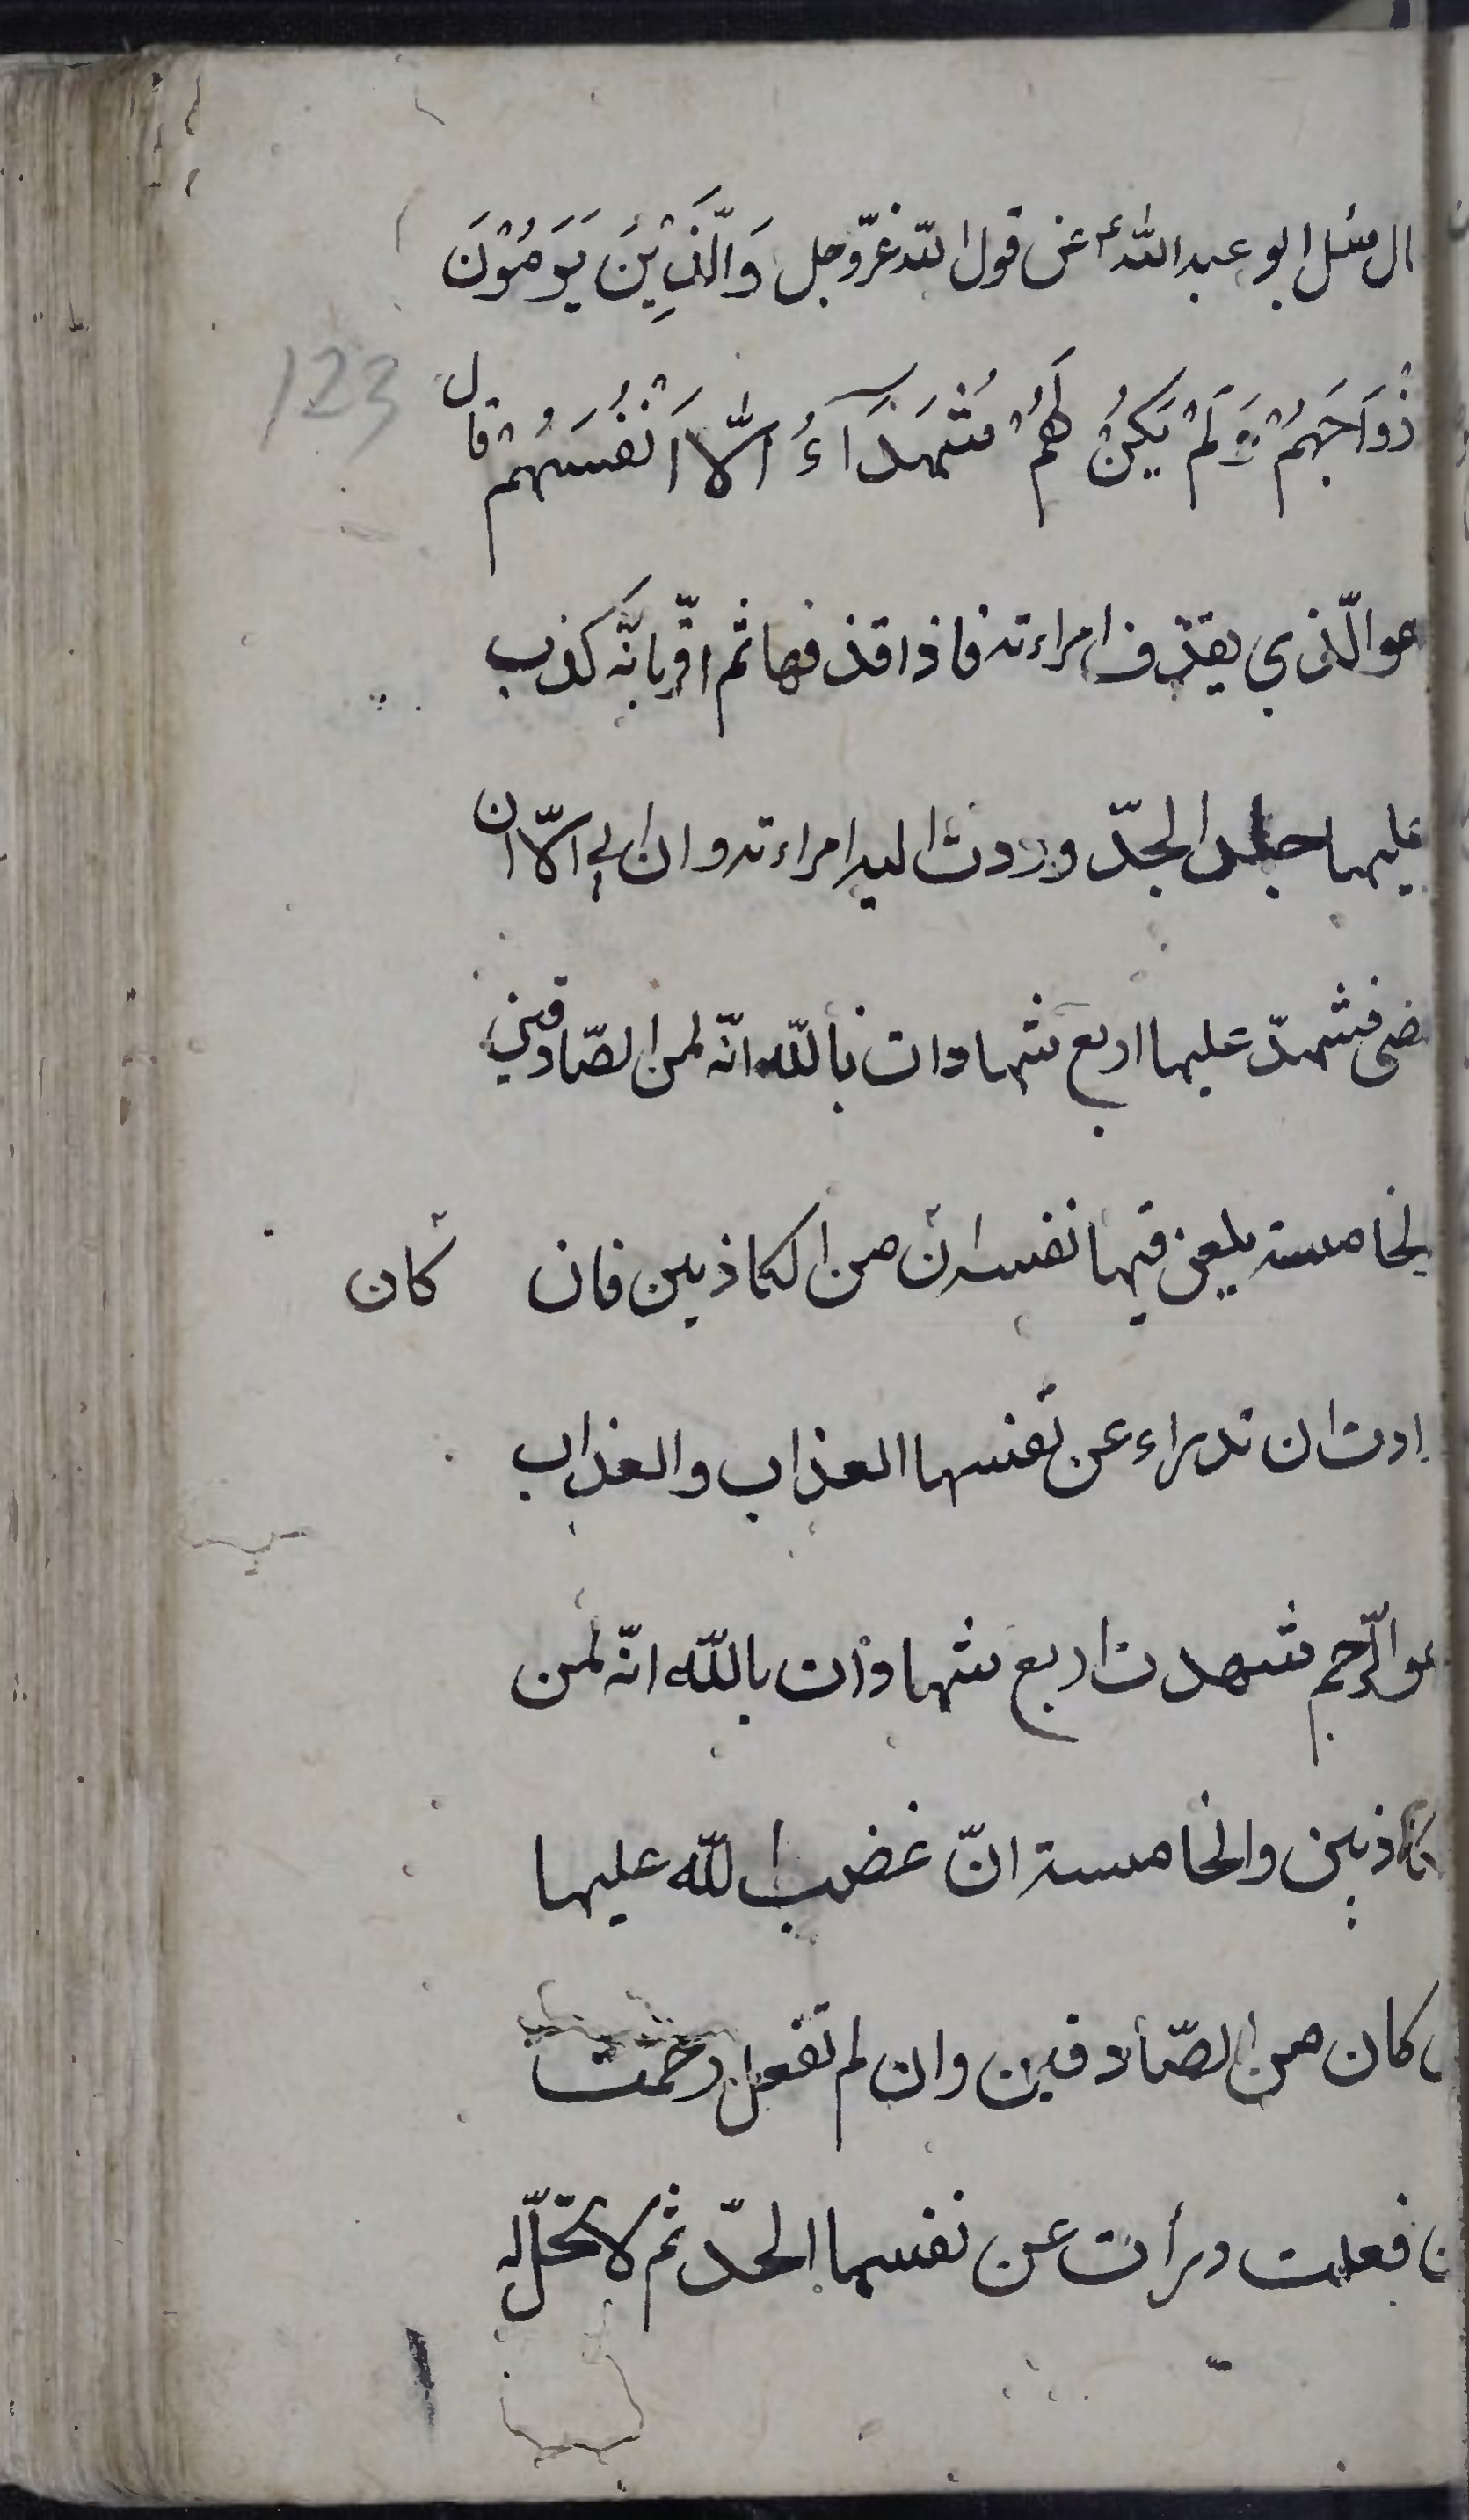 ال سئل ابو عبد اللهؑ عن قول الله عزّوجل وَالَّذِيْنَ يَرْمُوْنَ
زْوَاجَهُمْ وَلَمْ يَكُنْ لَهُمْ شُهَدَآءُ اِلّا اَنْفُسَهُمْ قال
123
هو الّذي يقذف امراءته فاذا قذفها ثم اقرّ بانّه كذب
عليها جلد الجدّ وردت اليه امراءته وان ابي الّا ان
ضى فشهدّ عليها اربع شهادات بالله انّه لمن الصّادقين
لخامسة يلعن فيها نفسه ان من الكاذبين فان كان
ادت ان تدراء عن نفسها العذاب والعذاب
هو الرّجم شهدت اربع شهادات بالله انّه لمن
كاذبين والخامسة انّ غضب الله عليها
كان من الصّادقين وان لم تفعل رجمت
ن فعلت درأت عن نفسها الحدّ ثم لا تحلّ له